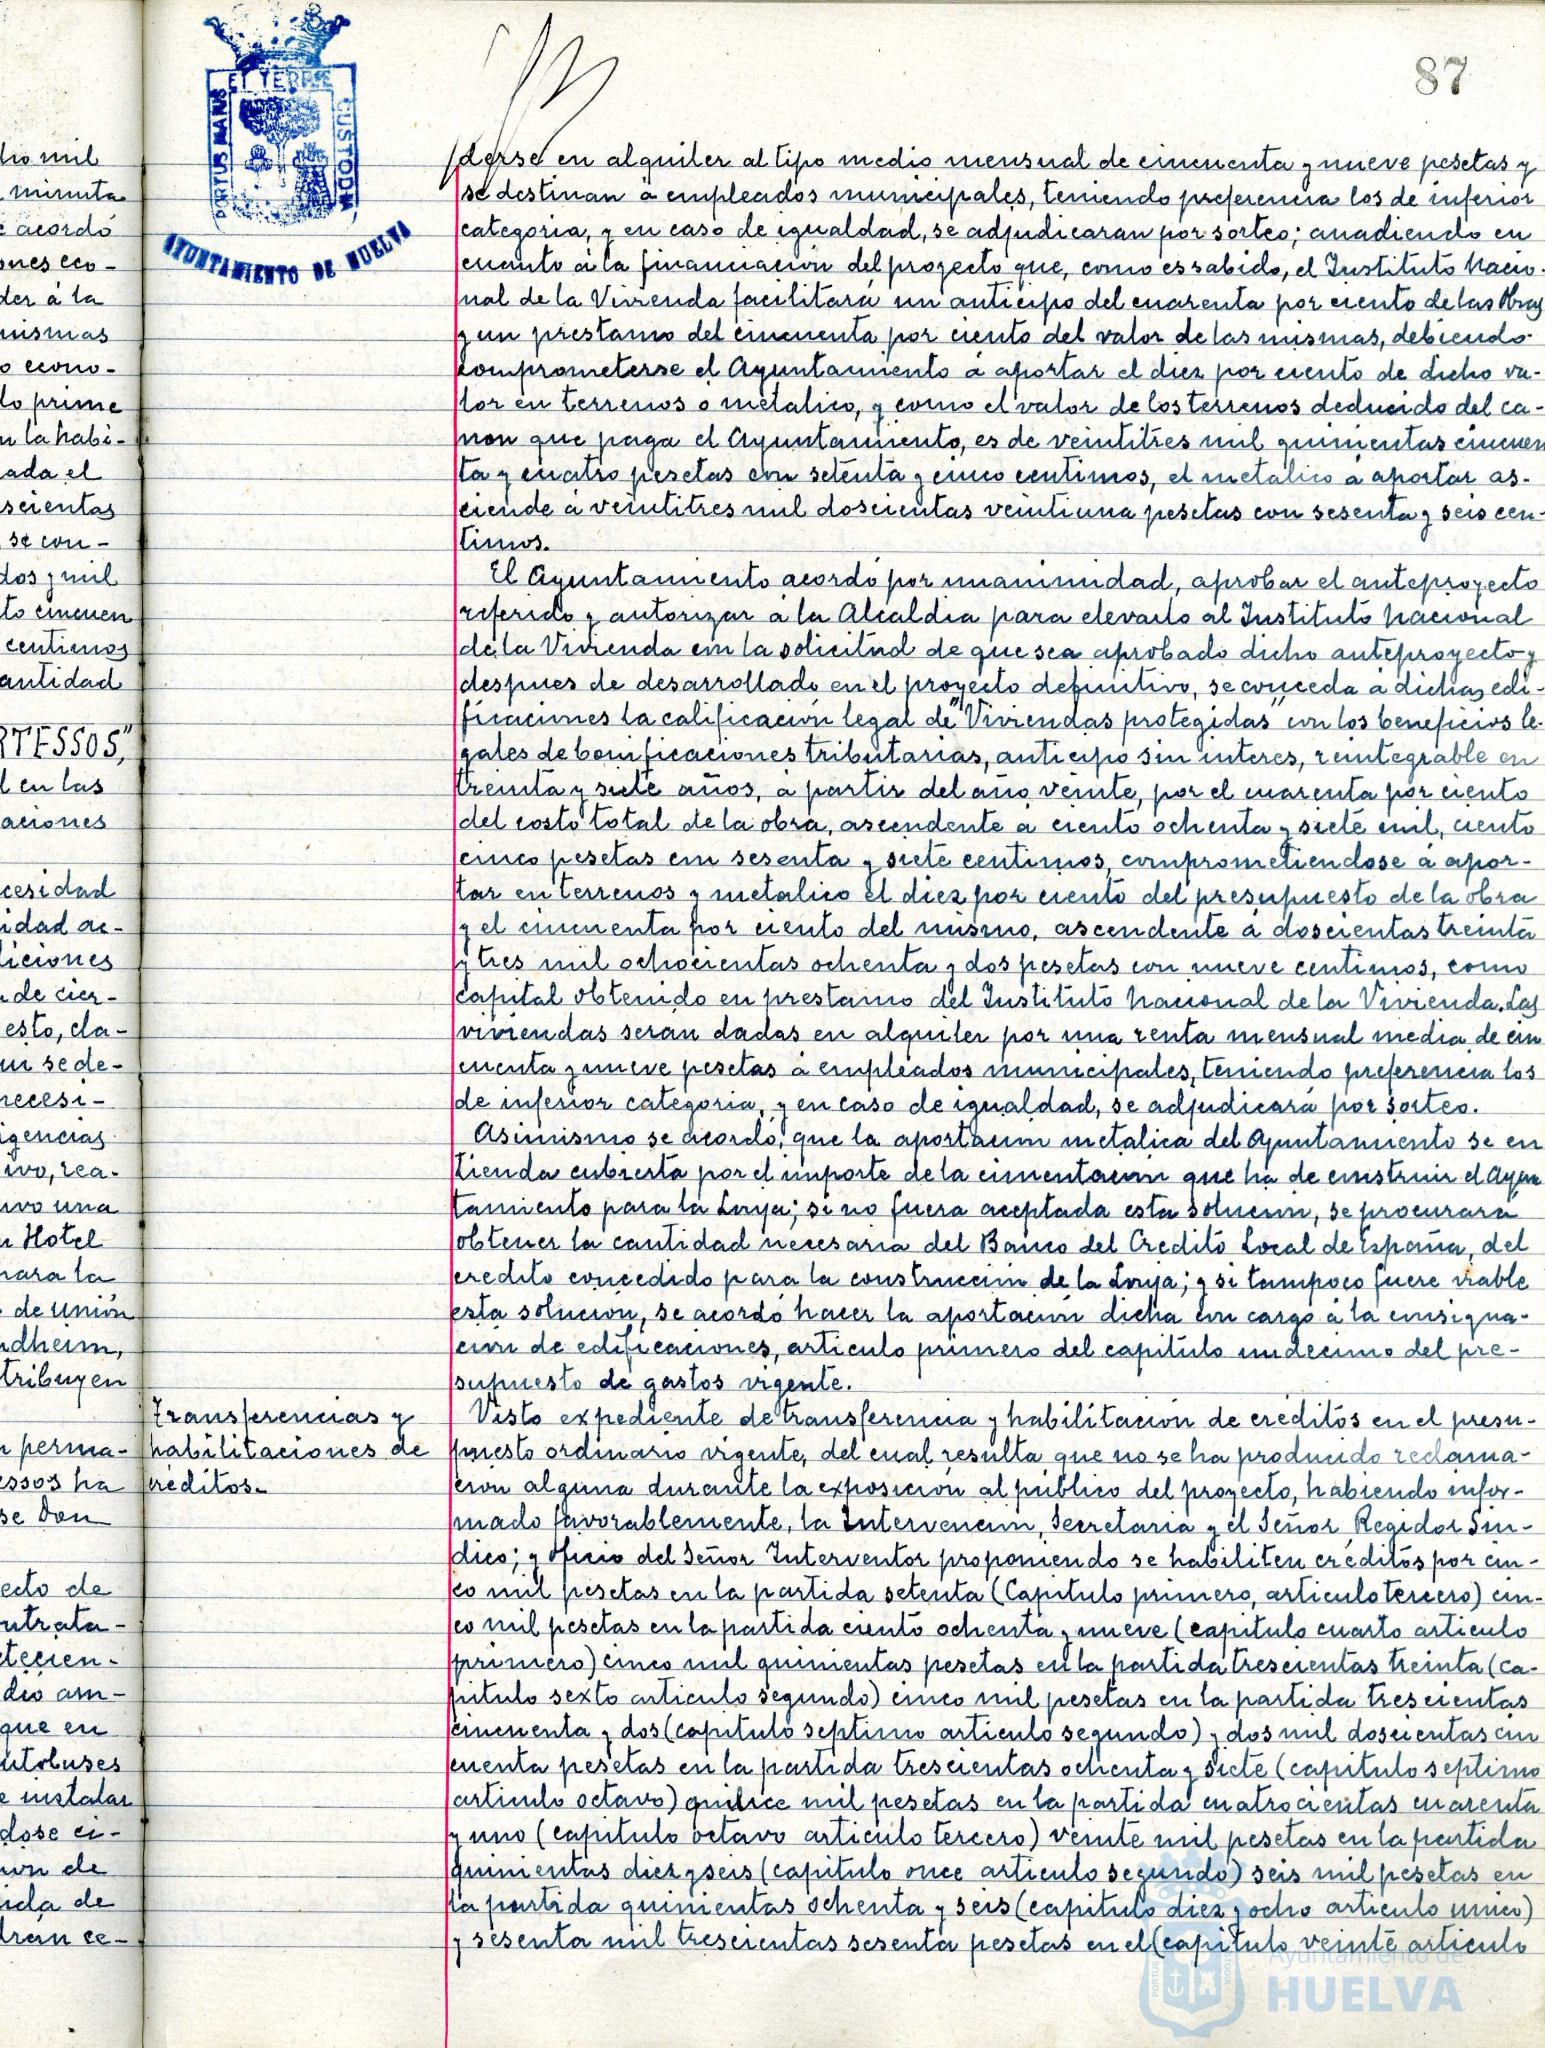 87
PORTUS MARIS ET TERRE CUSTODIA
AYUNTAMIENTO DE HUELVA
dio mil
minuta
acordó
ones eco-
der á la
mismas
o econo-
do prime
n la habi-
ada el
scientas
se con-
dos y mil
to cincuen
centimos
antidad
RTESSOS,"
l en las
aciones
cesidad
idad ac-
diciones
de cier-
esto, cla-
se de-
necesi-
igencias
ivo, rea-
ivo una
n Hotel
para la
de Unión
ndheim,
tribuyen
perma-
essos ha
se Don
ecto de
ntrata-
etecien-
dio am-
que en
utobuses
e instalar
dose ci-
ion de
ida de
drán ce-
derse en alquiler al tipo medio mensual de cincuenta y nueve pesetas y
se destinan á empleados municipales, teniendo preferencia los de inferior
categoria, y en caso de igualdad, se adjudicaran por sorteo; anadiendo en
cuanto á la financiación del proyecto que, como es sabido, el Instituto Nacio-
nal de la Vivienda facilitará un anticipo del cuarenta por ciento de las Obras
y un prestamo del cincuenta por ciento del valor de las mismas, debiendo
comprometerse el Ayuntamiento á aportar el diez por ciento de dicho va-
lor en terrenos o metalico, y como el valor de los terrenos deducido del ca-
non que paga el Ayuntamiento, es de veintitres mil quinientas cincuen
ta y cuatro pesetas con setenta y cinco centimos, el metalico á aportar as-
ciende á veintitres mil doscientas veintiuna pesetas con sesenta y seis cen-
timos.
El Ayuntamiento acordó por unanimidad, aprobar el anteproyecto
referido y autorizar á la Alcaldia para elevarlo al Instituto Nacional
de la Vivienda con la solicitud de que sea aprobado dicho anteproyecto y
despues de desarrollado en el proyecto definitivo, se conceda á dichas edi-
ficaciones la calificación legal de "Viviendas protegidas" con los beneficios le-
gales de bonificaciones tributarias, anticipo sin interes, reintegrable en
treinta y siete años, á partir del año veinte, por el cuarenta por ciento
del costo total de la obra, ascendente á ciento ochenta y siete mil, ciento
cinco pesetas con sesenta y siete centimos, comprometiendose á apor-
tar en terrenos y metalico el diez por ciento del presupuesto de la obra
y el cincuenta por ciento del mismo, ascendente á doscientas treinta
y tres mil ochocientas ochenta y dos pesetas con nueve centimos, como
capital obtenido en prestamo del Instituto Nacional de la Vivienda. Las
viviendas serán dadas en alquiler por una renta mensual media de cin
cuenta y nueve pesetas á empleados municipales, teniendo preferencia los
de inferior categoria, y en caso de igualdad, se adjudicará por sorteo.
Asimismo se acordó, que la aportacion metalica del Ayuntamiento se en
tienda cubierta por el importe de la cimentacion que ha de construir el Ayun
tamiento para la Lonja; si no fuera aceptada esta solucion, se procurará
obtener la cantidad necesaria del Banco del Credito Local de España, del
credito concedido para la construcción de la Lonja; y si tampoco fuere viable
esta solución, se acordó hacer la aportación dicha con cargo á la consigna-
cion de edificaciones, articulo primero del capitulo undecimo del pre-
supuesto de gastos vigente.
Transferencias y
habilitaciones de
créditos.
Visto expediente de transferencia y habilitación de creditos en el presu-
puesto ordinario vigente, del cual resulta que no se ha producido reclama-
ción alguna durante la exposición al público del proyecto, habiendo infor-
mado favorablemente, la Intervencion, Secretaria y el Señor Regidor Sin-
dico; y oficio del Señor Interventor proponiendo se habiliten créditos por cin-
co mil pesetas en la partida setenta (Capitulo primero, articulo tercero) cin-
co mil pesetas en la partida ciento ochenta y nueve (capitulo cuarto articulo
primero) cinco mil quinientas pesetas en la partida trescientas treinta (ca-
pitulo sexto articulo segundo) cinco mil pesetas en la partida trescientas
cincuenta y dos (capitulo septimo articulo segundo) y dos mil doscientas cin
cuenta pesetas en la partida trescientas ochenta y siete (capitulo septimo
articulo octavo) quince mil pesetas en la partida cuatrocientas cuarenta
y uno (capitulo octavo articulo tercero) veinte mil pesetas en la partida
quinientas diez y seis (capitulo once articulo segundo) seis mil pesetas en
la partida quinientas ochenta y seis (capitulo diez y ocho articulo unico)
y sesenta mil trescientas sesenta pesetas en el (capitulo veinte articulo
Ayuntamiento de
HUELVA